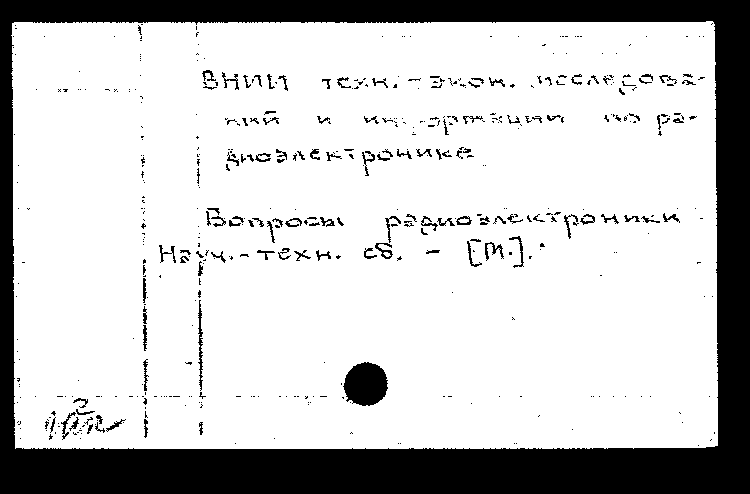 ВНИИ техн.-экон. исследова-
ний и информации по ра-
диоэлектронике
Вопросы радиоэлектроники
Науч.-техн. сб. - [М.].